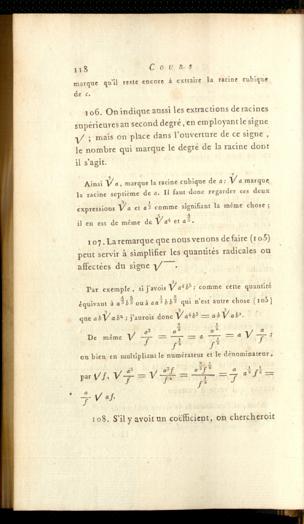 118 Cours
marque qu'il reste encore à extraire la racine cubique
de c.
106. On indique aussi les extractions de racines
supérieures au second degré, en employant le signe
√ ; mais on place dans l'ouverture de ce signe,
le nombre qui marque le degré de la racine dont
il s'agit.
Ainsi ∛a, marque la racine cubique de a : ⁷√a marque
la racine septième de a. Il faut donc regarder ces deux
expressions et comme signifiant la même chose ;
il en est de même de et
107. La remarque que nous venons de faire (105)
peut servir à simplifier les quantités radicales ou
affectées du signe √‾.
Par exemple, si j'avois ; comme cette quantité
équivaut à ou à qui n'est autre chose (105)
que ; j'aurois donc
De même √ a³/f = = a = a √ a/f ;
ou bien en multipliant le numérateur et le dénominateur,
par √f, √ a³/f = √ a³f/f² = = a/f =
a/f √ af.
108. S'il y avoit un coëfficient, on chercheroit